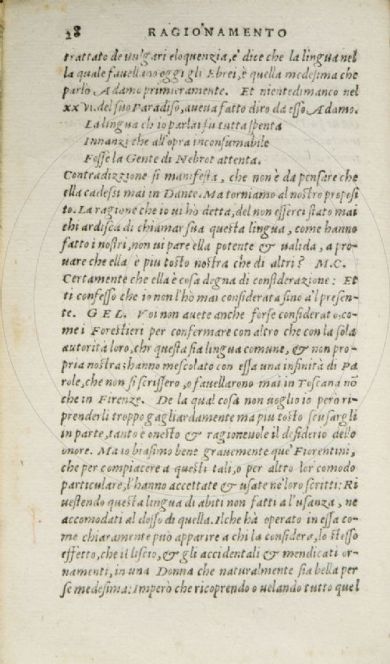 28 RAGIONAMENTO
trattato de vulgari eloquenzia, e dice che la lingua nel
la quale favellano oggi gli Ebrei, è quella medesima che
parlò Adamo primieramente. Et nientedimanco nel
xxvi. del suo Paradiso, aveva fatto dire da esso Adamo.
La lingua ch io parlai fu tutta spenta
Innanzi che all'opra inconsumabile
Fosse la Gente di Nebrot attenta.
Contradizzione si manifesta, che non è da pensare che
ella cadessi mai in Dante. Ma torniamo al nostro proposi
to. La ragione che io vi hò detta, del non esserci stato mai
chi ardisca di chiamar sua questa lingua, come hanno
fatto i nostri, non vi pare ella potente & valida, a pro-
vare che ella è piu tosto nostra che di altri? M. C.
Certamente che ella è cosa degna di considerazione: Et
ti confesso che io non l'hò mai considerata sino a'l presen-
te. GEL. Voi non avete anche forse considerato, co-
me i Forestieri per confermare con altro che con la sola
autorità loro, che questa sia lingua comune, & non pro-
pria nostra; hanno mescolato con essa una infinità di Pa
role, che non si scrissero, o favellarono mai in Toscana nō
che in Firenze. De la qual cosa non voglio io però ri-
prenderli troppo gagliardamente ma piu tosto scusargli
in parte, tanto è onesto & ragionevole il desiderio dello
onore. Ma io biasimo bene gravemente que' Fiorentini,
che per compiacere a questi tali, o per altro lor comodo
particulare, l'hanno accettate & usate ne'loro scritti: Ri
vestendo questa lingua di abiti non fatti a l'usanza, ne
accomodati al dosso di quella. Ilche hà operato in essa co-
me chiaramente può apparire a chi la considera, lo stesso
effetto, che il liscio, & gli accidentali & mendicati or-
namenti, in una Donna che naturalmente sia bella per
se medesima: Imperò che ricoprendo o velando tutto quel